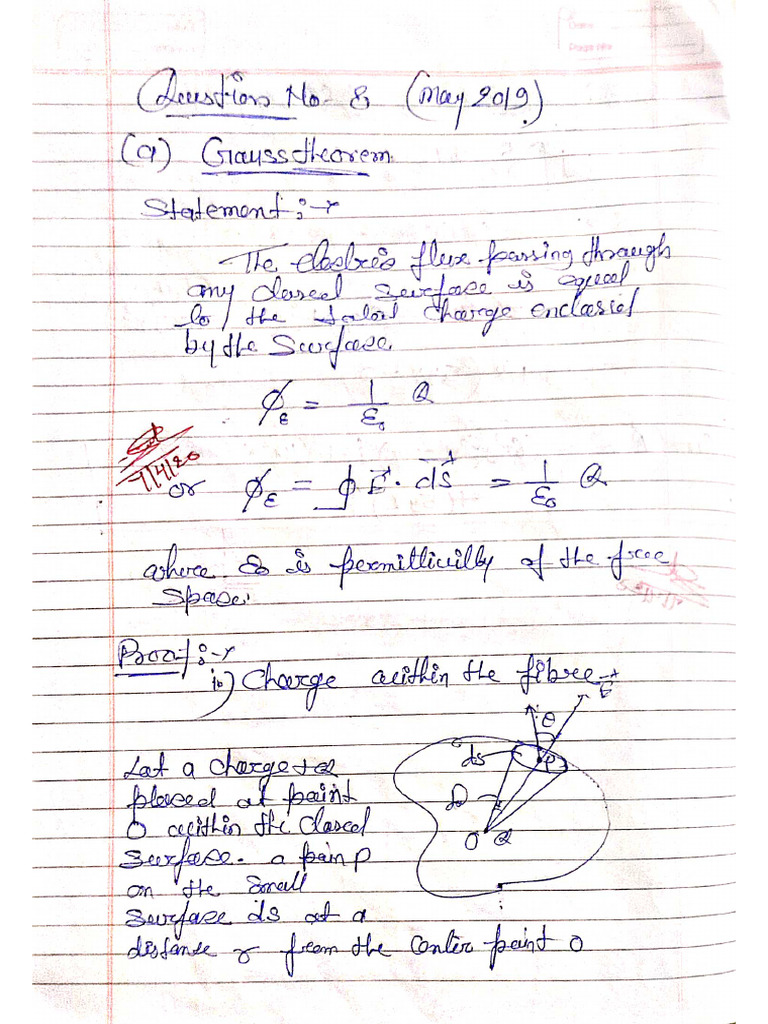 Question No- 8 (May 2019)
(a) Gauss theorem
Statement :-
The electric flux passing through
any closed surface is equal
to the total charge enclosed
by the surface
ϕE = 1/ε0 Q
9/4/20
or ϕE = ∮ E⃗ · ds⃗ = 1/ε0 Q
where ε0 is permittivilly of the free
space.
Proof :-
i) Charge within the fibre
E⃗
θ
ds P
Let a charge +Q
placed at point
O Q
O within the closed
surface. a pain P
on the small
surface ds at a
distance r from the center point O